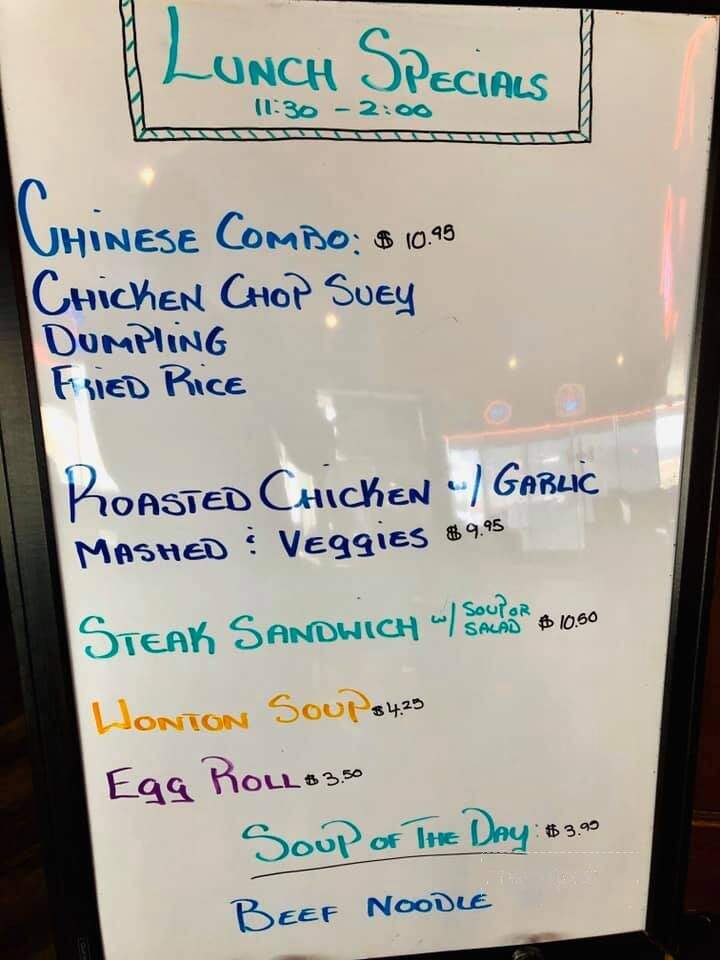 LUNCH SPECIALS
11:30 - 2:00
CHINESE COMBO: $ 10.95
CHICKEN CHOP SUEY
DUMPLING
FRIED RICE
ROASTED CHICKEN w/ GARLIC
MASHED & VEGGIES $ 9.95
STEAK SANDWICH w/ SOUP OR SALAD $ 10.50
WONTON SOUP $ 4.25
EGG ROLL $ 3.50
SOUP OF THE DAY: $ 3.95
BEEF NOODLE